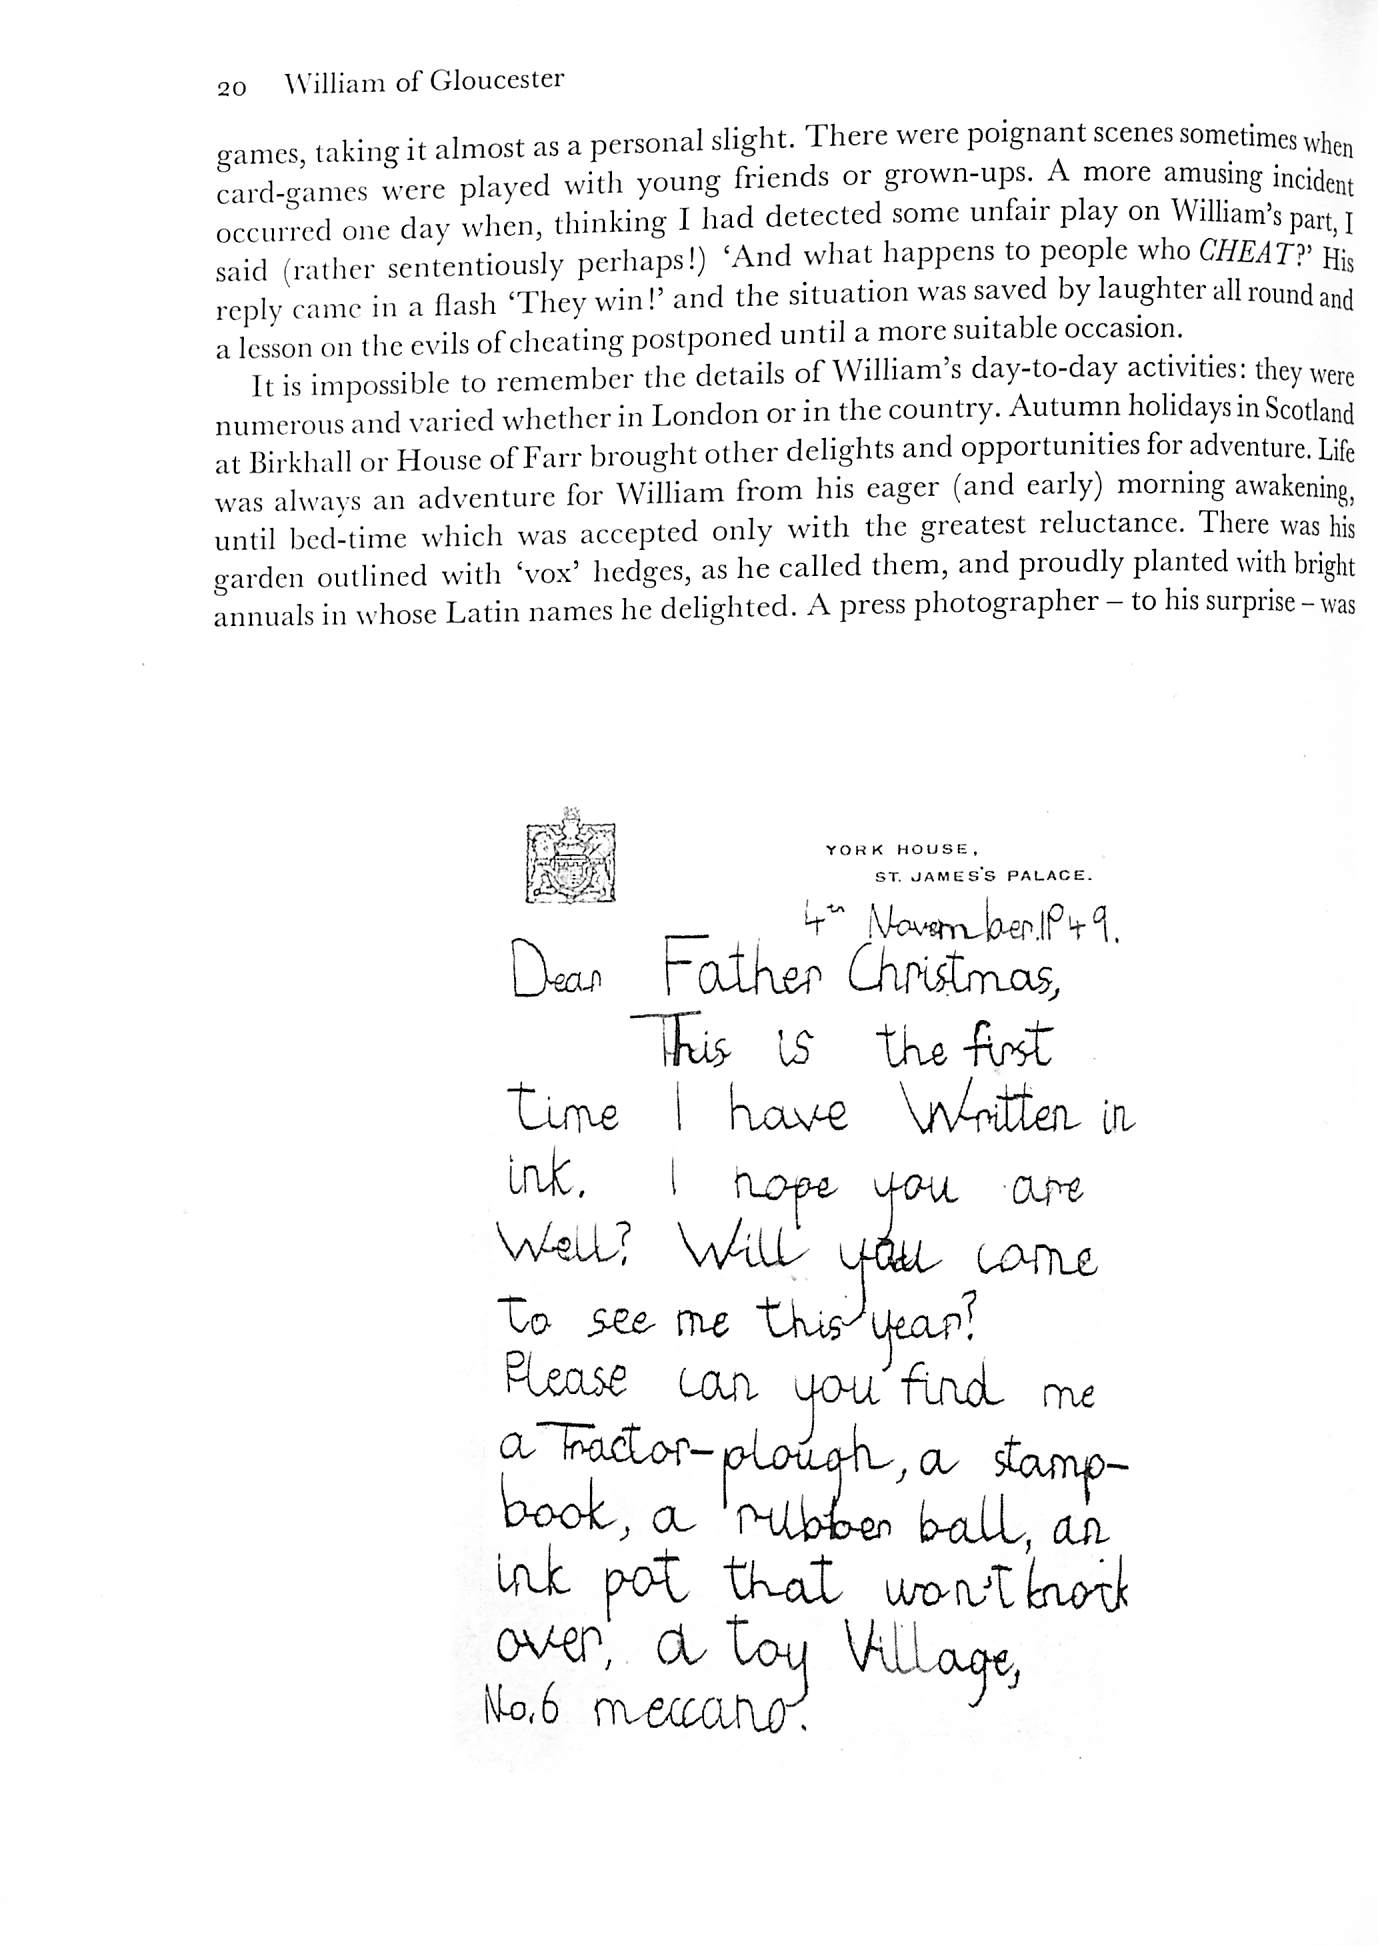 20 William of Gloucester
games, taking it almost as a personal slight. There were poignant scenes sometimes when
card-games were played with young friends or grown-ups. A more amusing incident
occurred one day when, thinking I had detected some unfair play on William's part, I
said (rather sententiously perhaps!) ‘And what happens to people who CHEAT?’ His
reply came in a flash ‘They win!’ and the situation was saved by laughter all round and
a lesson on the evils of cheating postponed until a more suitable occasion.
It is impossible to remember the details of William's day-to-day activities: they were
numerous and varied whether in London or in the country. Autumn holidays in Scotland
at Birkhall or House of Farr brought other delights and opportunities for adventure. Life
was always an adventure for William from his eager (and early) morning awakening,
until bed-time which was accepted only with the greatest reluctance. There was his
garden outlined with ‘vox’ hedges, as he called them, and proudly planted with bright
annuals in whose Latin names he delighted. A press photographer – to his surprise – was
YORK HOUSE,
ST. JAMES'S PALACE.
4th November.1949.
Dear Father Christmas,
This is the first
time I have Written in
ink. I hope you are
Well? Will you come
to see me this year?
Please can you find me
a Tractor-plough, a stamp-
book, a rubber ball, an
ink pot that won't knock
over, a toy Village,
No.6 meccano.